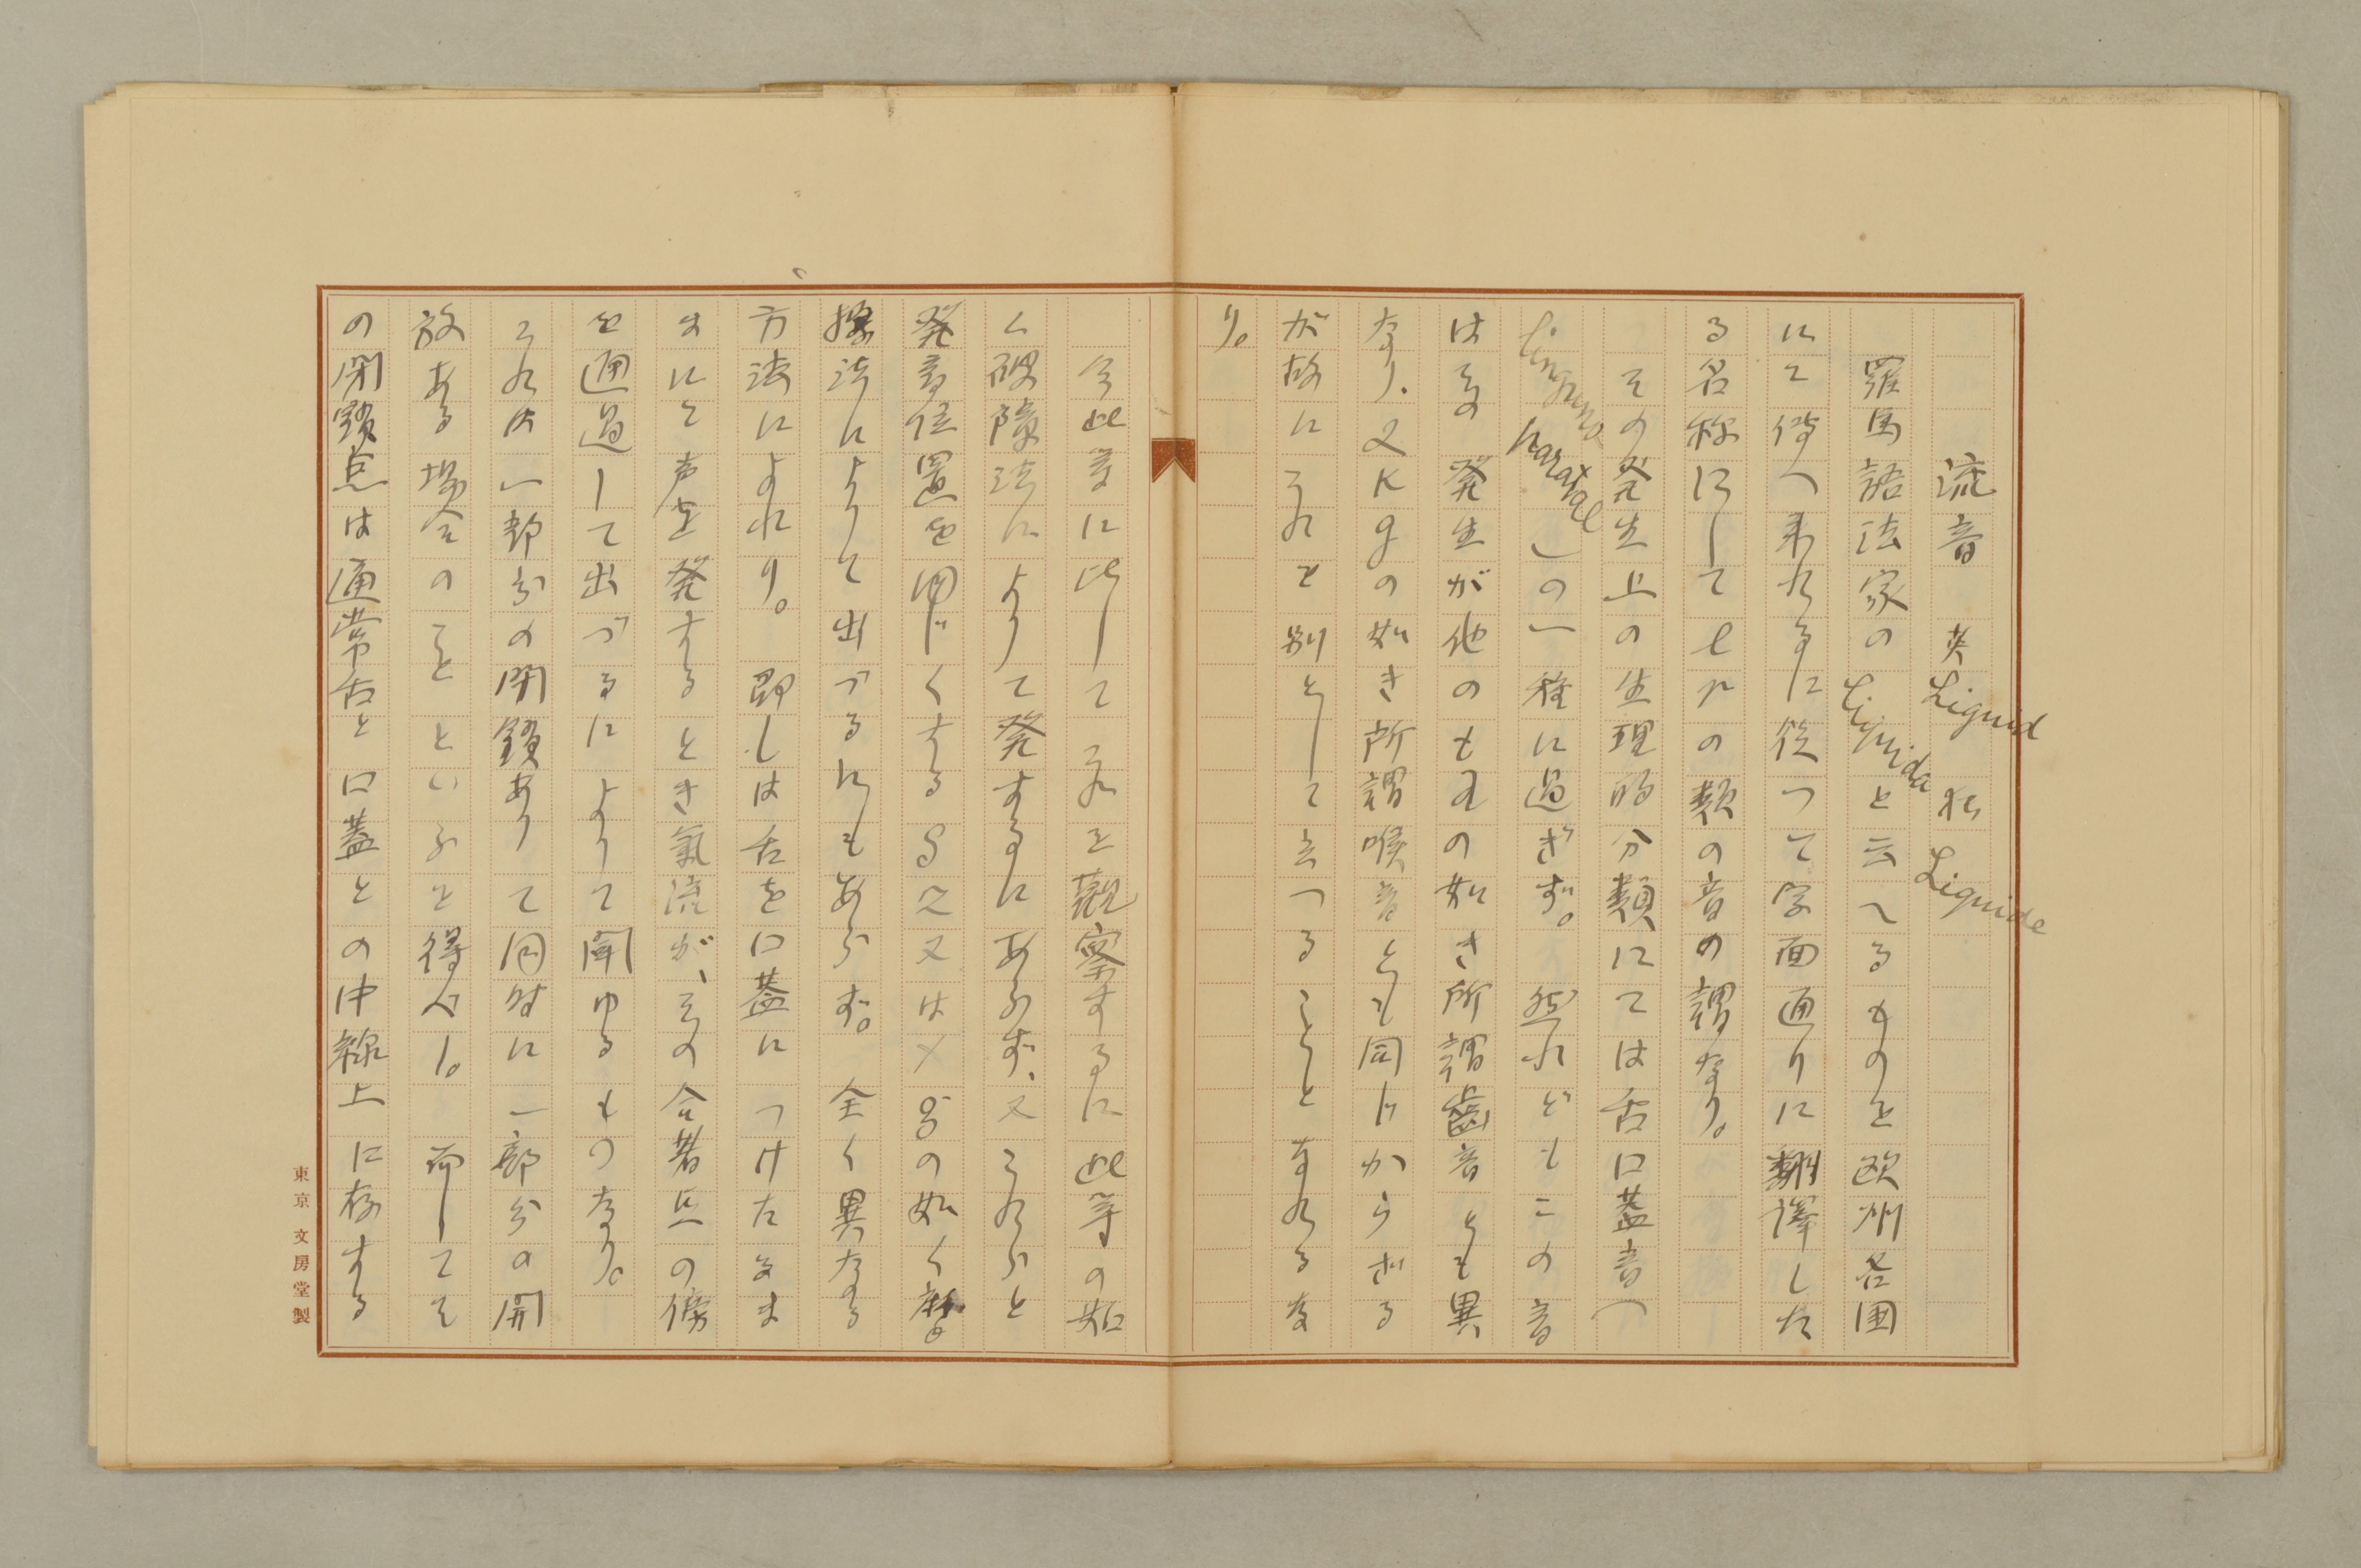 流音　英 Liquid　払 Liquide
羅馬語法家の Liquida と云へるものを欧州各国
にて伝へ来れるに従つて字面通りに翻譯した
る名称にして l r の類の音の謂なり。
その発生上の生理的分類にては舌口蓋音（
linguo palatal）の一種に過ぎず。然れどもこの音
はその発生が他のもの の如き所謂齒音とも異
なり. 又 K g の如き所謂喉音とも同じからざる
が故にこれを別として立つることとなれるな
り。
今此等に比してこれを観察するに此等の如
く破障法によりて発するにあらず、又これらと
発音位置を同じくする s z 又は の如く摩
擦法によりて出づるにもあらず。全く異なる
方法によれり。即しは舌を口蓋につけたるま
まにて声を発するとき氣流が、その合著点の傍
を通過して出づるによりて聞ゆるものなり。
これは一部分の閉鎖ありて同時に一部分の開
放ある場合のことといふを得べし。而してそ
の閉鎖点は通常舌と口蓋との中線上に存する
東京 文房堂製